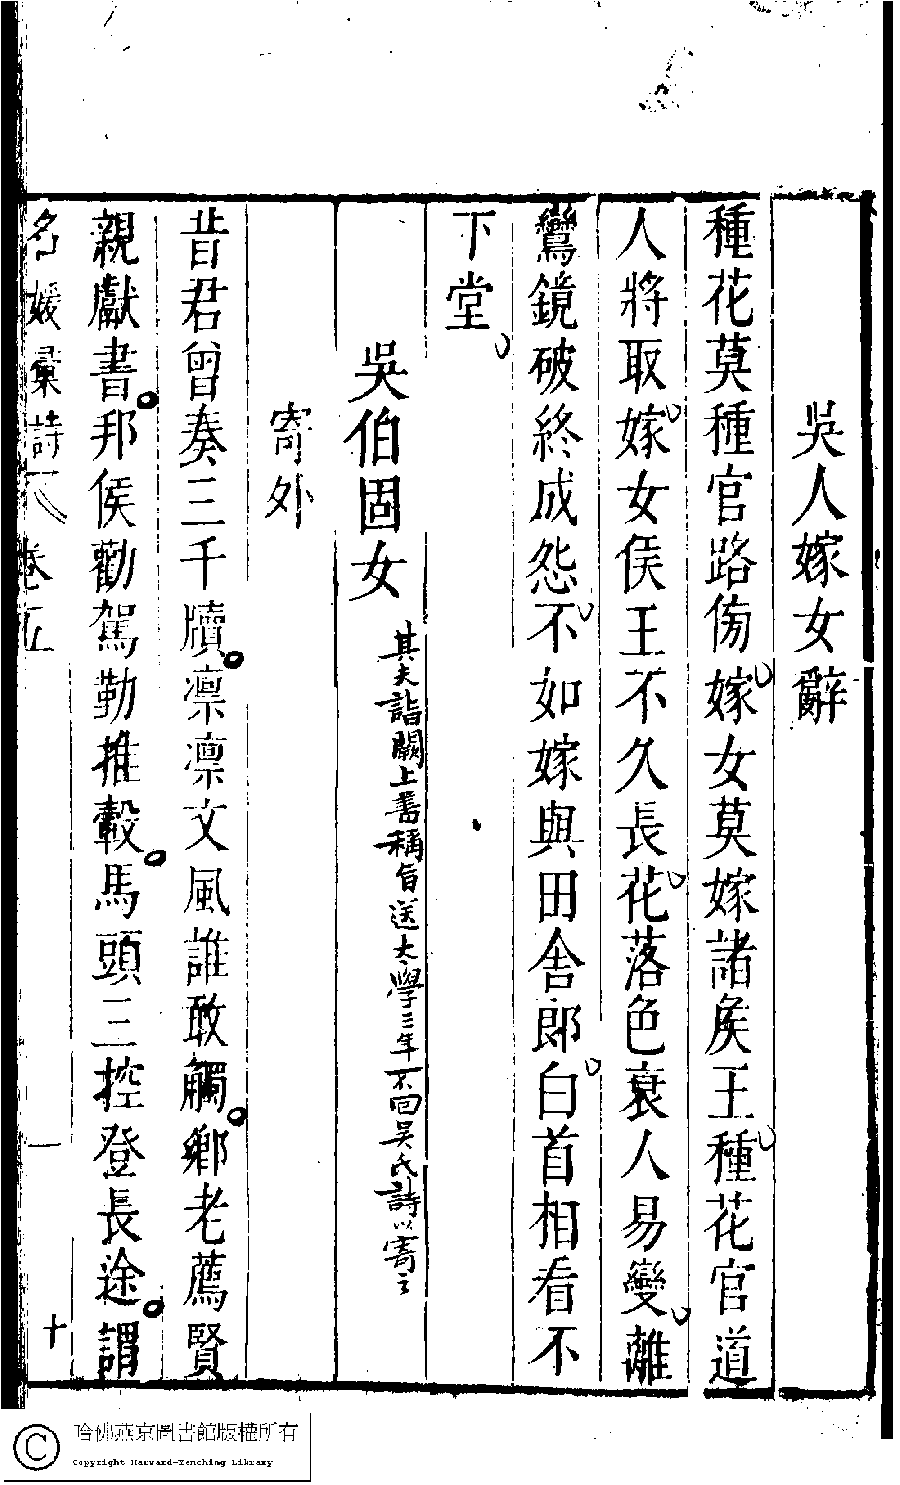 吳人嫁女辭
種花莫種官路傍嫁女莫嫁諸侯王種花官道
人將取嫁女侯王不久長花落色衰人易變離
鸞鏡破終成怨不如嫁與田舍郎白首相看不
下堂
吳伯固女
其夫詣闕上書稱旨送太學三年不回吳氏詩以寄之
寄外
昔君曾奏三千牘凛凛文風誰敢觸鄉老薦賢
親獻書邦侯勸駕勒推轂馬頭三控登長途謂
名媛彙詩 卷五 十
哈佛燕京圖書館版權所有
Copyright Harvard-Yenching Library